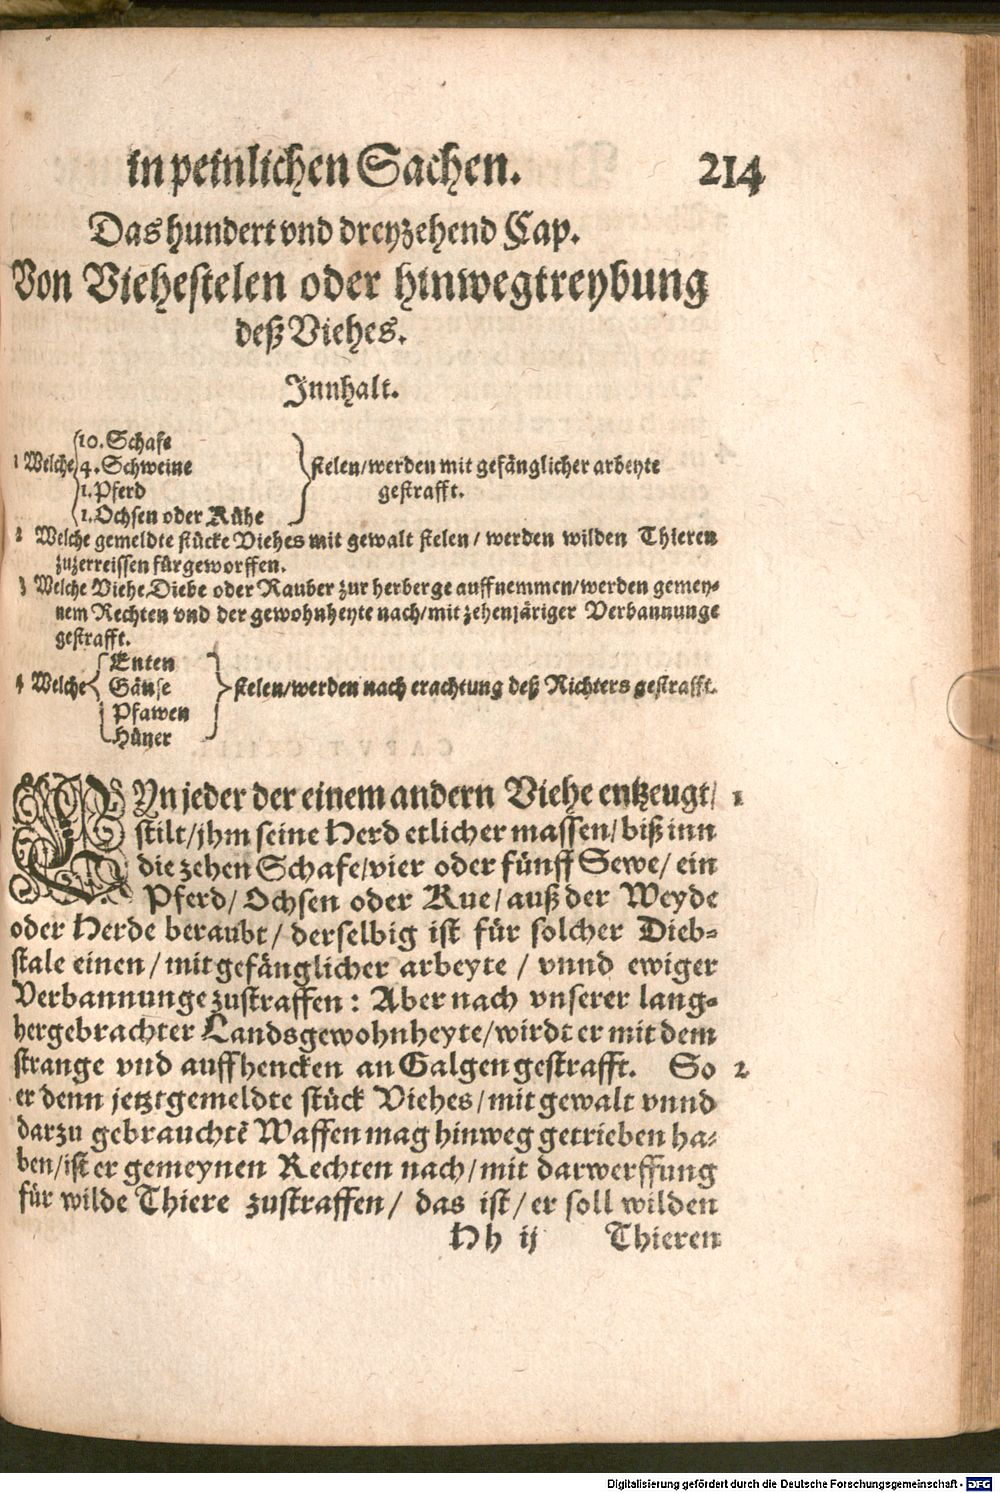 in peinlichen Sachen. 214
Das hundert vnd dreyzehend Cap.
Von Viehestelen oder hinwegtreybung
deß Viehes.
Innhalt.
1 Welche
10. Schafe
4. Schweine
1. Pferd
1. Ochsen oder Kühe
stelen/werden mit gefänglicher arbeyte
gestrafft.
2 Welche gemeldte stücke Viehes mit gewalt stelen / werden wilden Thieren
zuzerreissen fürgeworffen.
3 Welche Viehe, Diebe oder Rauber zur herberge auffnemmen/werden gemey-
nem Rechten vnd der gewohnheyte nach/mit zehenjäriger Verbannunge
gestrafft.
4 Welche
Enten
Gänse
Pfawen
Hüner
stelen/werden nach erachtung deß Richters gestrafft.
EYn jeder der einem andern Viehe entzeugt/ 1
stilt/jhm seine Herd etlicher massen/biß inn
die zehen Schafe/vier oder fünff Sewe/ ein
Pferd/ Ochsen oder Kue/auß der Weyde
oder Herde beraubt/ derselbig ist für solcher Dieb-
stale einen/mit gefänglicher arbeyte / vnnd ewiger
Verbannunge zustraffen: Aber nach vnserer lang-
hergebrachter Landsgewohnheyte/wirdt er mit dem
strange vnd auffhencken an Galgen gestrafft. So 2
er denn jetztgemeldte stück Viehes/mit gewalt vnnd
darzu gebrauchtē Waffen mag hinweg getrieben ha-
ben/ist er gemeynen Rechten nach/mit darwerffung
für wilde Thiere zustraffen/ das ist/er soll wilden
Hh ij Thieren
Digitalisierung gefördert durch die Deutsche Forschungsgemeinschaft - DFG